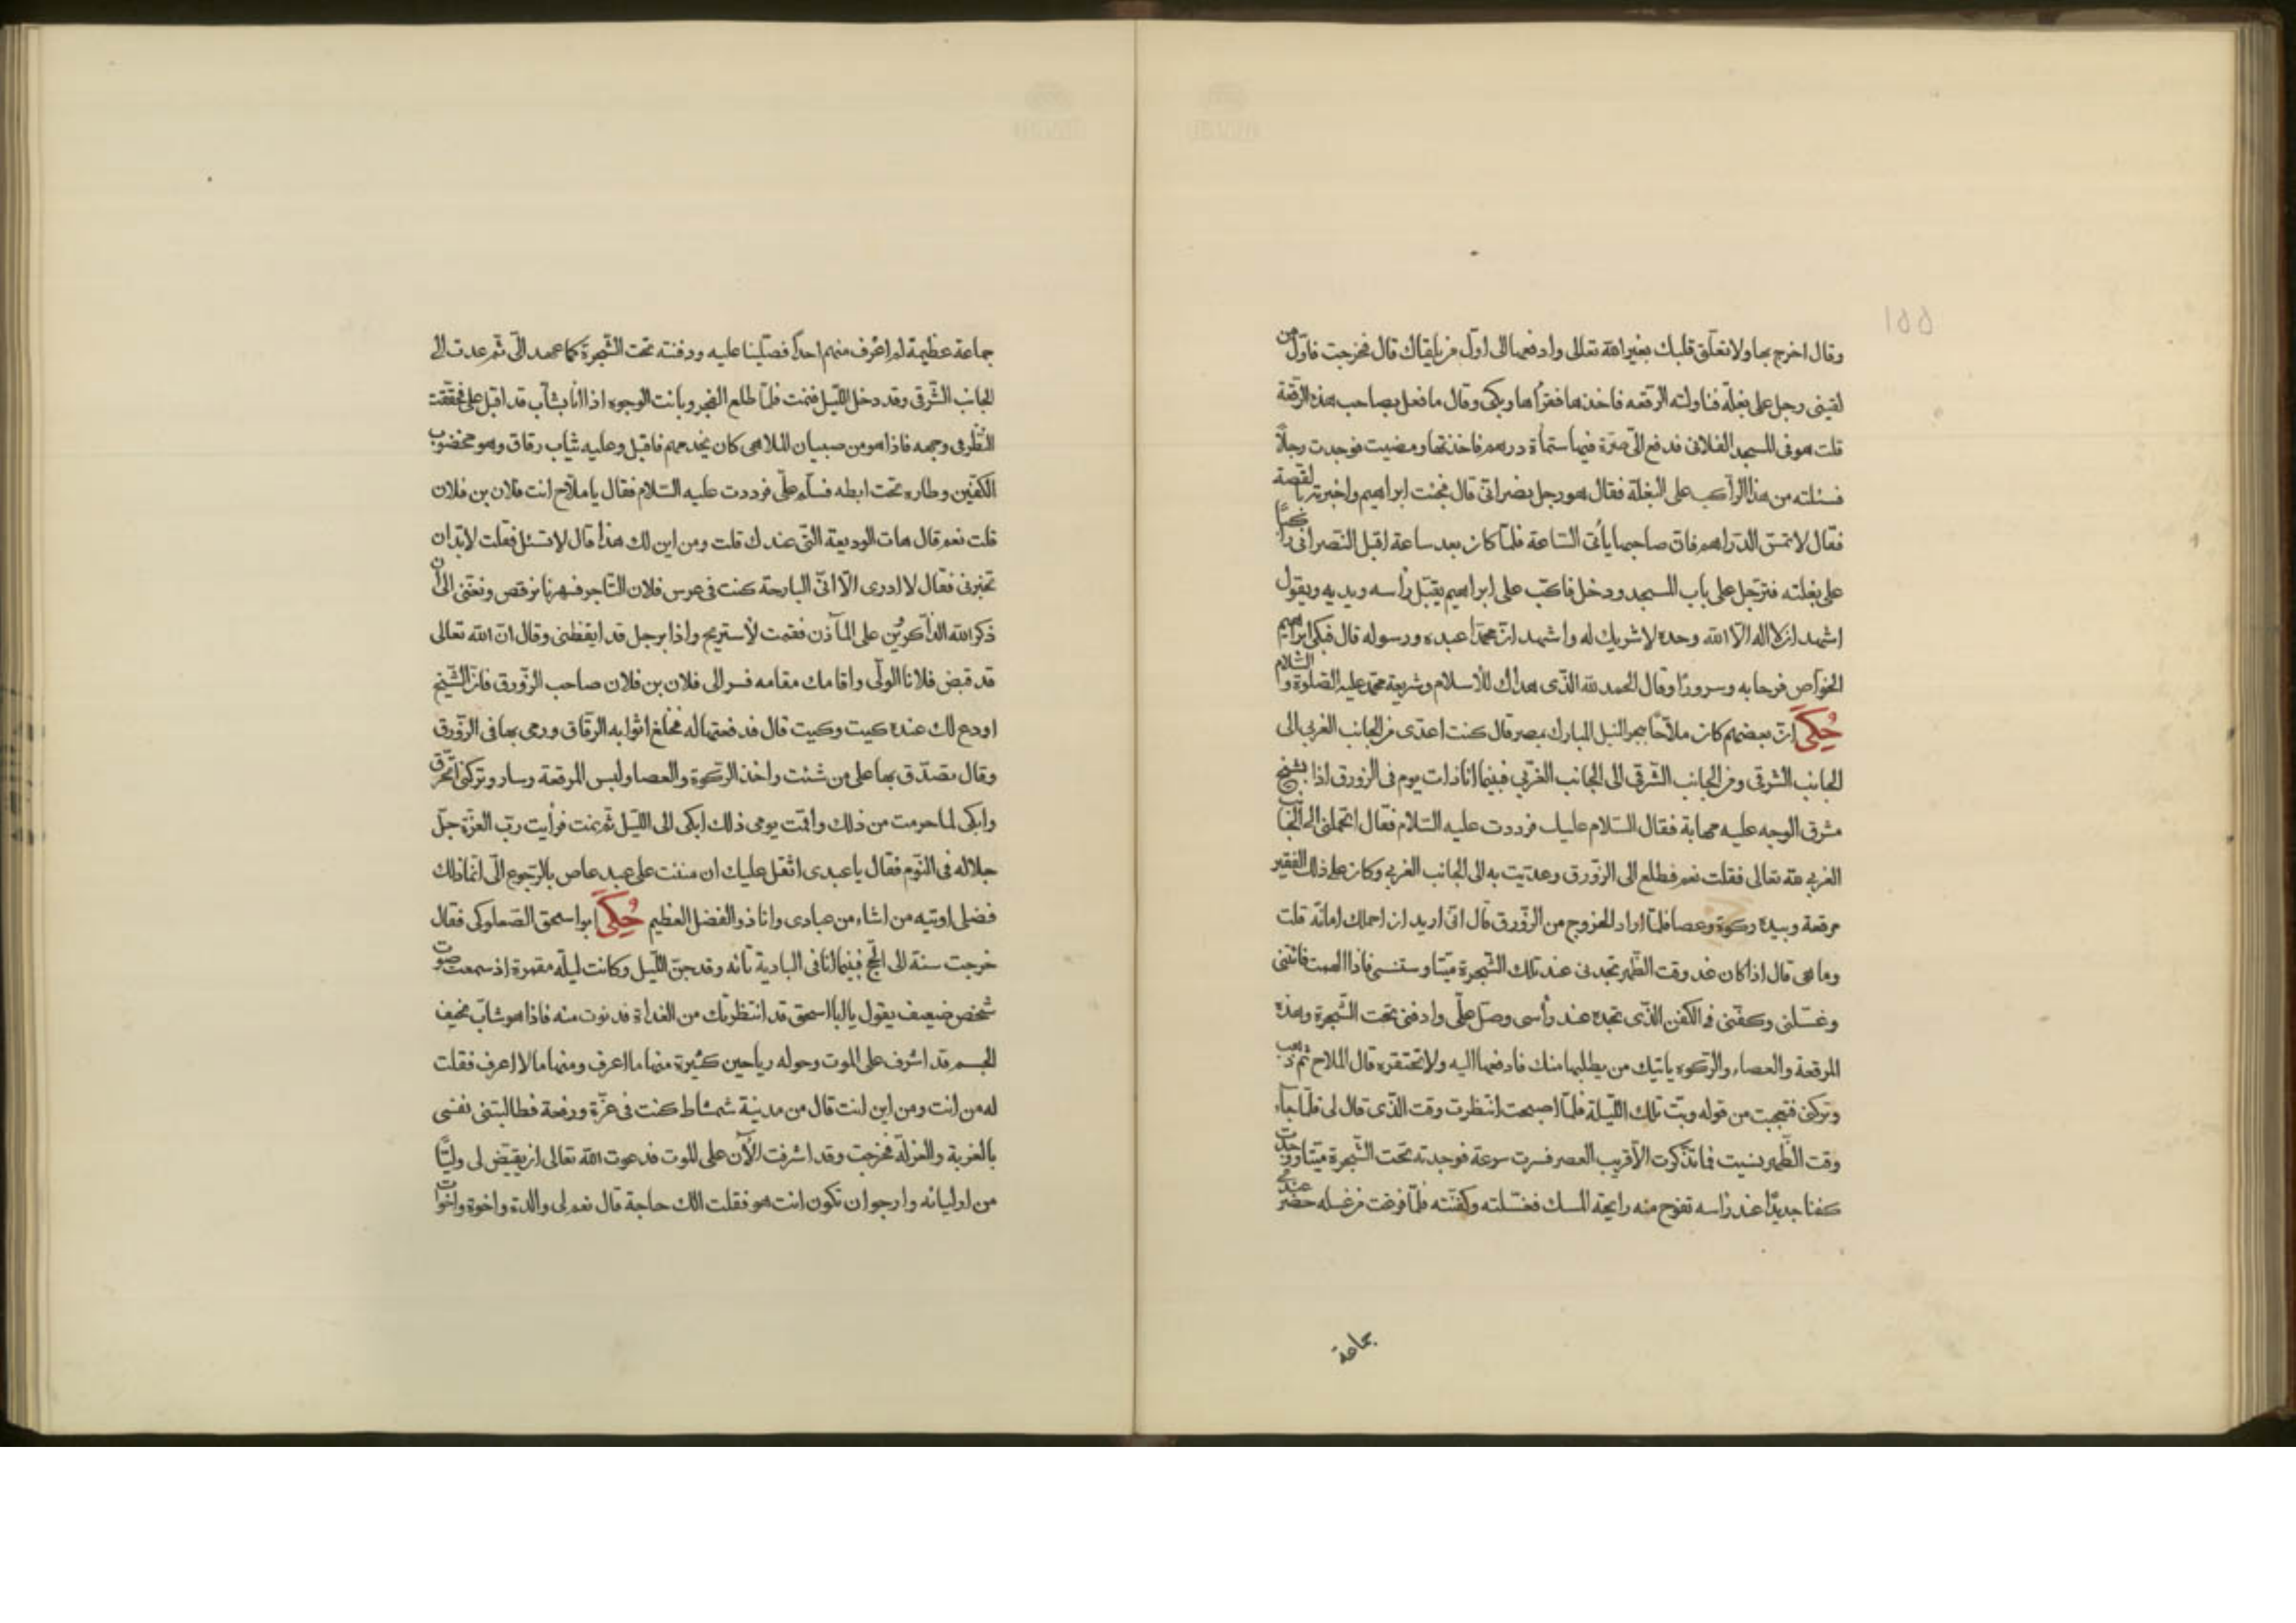 وقال اخرج بها ولا تعلق قلبك بغير الله تعالى وادفعها الى اول من يلقاك قال فخرجت فاول من
لقينى رجل على بغلة فناولته الرقعه فاخذها فقرأها وبكى وقال ما فعل بصاحب هذه الرقعة
قلت هو فى المسجد الفلانى فدفع الىّ صرّة فيها ستمأة درهم فاخذتها ومضيت فوجدت رجلاً
فسئلته من هذا الراكب على البغلة فقال هو رجل نصرانىّ قال فجئت ابراهيم واخبرته بالقصة
فقال لا تمسّ الدّراهم فانّ صاحبها يأتى السّاعة فلمّا كان بعد ساعة اقبل النّصرانى راكباً
على بغلته فترجّل على باب المسجد ودخل فاكبّ على ابراهيم يقبّل رأسه ويديه ويقول
اشهد ان لا اله الّا الله وحده لا شريك له واشهد انّ محمّداً عبده ورسوله قال فبكى ابراهيم
الخوّاص فرحا به وسروراً وقال الحمد لله الذّى هداك للأسلام وشريعة محمّد عليه الصّلوة والسّلام
حُكِىَ انّ بعضهم كان ملّاحاً ببحر النيل المبارك بمصر قال كنت اعدّى من الجانب الغربى الى
الجانب الشرقى ومن الجانب الشّرقى الى الجانب الغرّبى فبينما انا ذات يوم فى الزورق اذا بشيخ
مشرق الوجه عليه مهابة فقال السّلام عليك فرددت عليه السّلام فقال اتحملنى الى الجانب
الغربى لله تعالى فقلت نعم فطلع الى الزّورق وعدّيت به الى الجانب الغربى وكان على ذلك الفقير
مرقعة وبيده ركوة وعصا فلمّا اراد الخروج من الزّورق قال انّى اريد ان احملك امانة قلت
وما هى قال اذا كان غد وقت الظّهر تجدنى عند تلك الشّجرة ميّتا وستنسى فاذا الهمت فائتنى
وغسّلنى وكفّنى فى الكفن الذّى تجده عند رأسى وصلّ علّى وادفنى تحت الشّجرة وهذه
المرقعة والعصاء والرّكوه ياتيك من يطلبها منك فادفعها اليه ولا تحتقره قال الملاح ثمّ ذهب
وتركنى فتعجبت من قوله وبتّ تلك اللّيلة فلمّا اصبحت انتظرت وقت الذّى قال لى فلمّا جاء
وقت الظّهر نسيت فما تذكّرت الّا قريب العصر فسرت سرعة فوجدته تحت الشّجرة ميّتا ووجدت
كفنا جديدًا عند رأسه تفوح منه رايحة المسك فغسّلته وكفّنته فلمّا فرغت من غسله حضر عندى
جماعة
جماعة عظيمة لم اعرف منهم احداً فصلّينا عليه ودفنته تحت الشّجرة كما عهد الىّ ثمّ عدت الى
الجانب الشّرقى وقد دخل اللّيل فنمت فلمّا طلع الفجر وبانت الوجوه اذا انا بشابّ قد اقبل علىّ فحققت
النّظر فى وجهه فاذا هو من صبيان الملاهى كان يخدمهم فاقبل وعليه ثياب رقاق وهو مخضوب
الكفّين وطاره تحت ابطه فسلّم علىّ فرددت عليه السّلام فقال يا ملاّح انت فلان بن فلان
قلت نعم قال هات الوديعة التّى عندك قلت ومن اين لك هذا قال لا تسئل فقلت لا بدّ ان
تخبرنى فقال لا ادرى الّا انّى البارحة كنت فى عرس فلان التّاجر فسهرنا نرقص ونغنّى الى ان
ذكر الله الذّاكرين على المآذن فقمت لأستريح واذا برجل قد ايقظنى وقال انّ الله تعالى
قد قبض فلانا الولّى واقامك مقامه فسر الى فلان بن فلان صاحب الزّورق فانّ الشّيخ
اودع لك عنده كيت وكيت قال فدفعتها له فخلع اثوابه الرّقاق ورمى بها فى الزّورق
وقال تصدّق بها على من شئت واخذ الرّكوة والعصا ولبس المرقعة وسار وتركنى اتحرّق
وابكى لما حرمت من ذلك واقمت يومى ذلك ابكى الى اللّيل ثمّ نمت فرأيت ربّ العزّة جلّ
جلاله فى النّوم فقال يا عبدى اثقل عليك ان مننت على عبد عاص بالرّجوع الىّ انّما ذلك
فضلى اوتيه من اشاء من عبادى وانا ذو الفضل العظيم حُكِىَ ابو اسحق الصّعلوكى فقال
خرجت سنة الى الحّج فبينما انا فى البادية تائه وقد جنّ اللّيل وكانت ليلة مقمرة اذ سمعت صوت
شخص ضعيف يقول يا ابا اسحق قد انتظرتك من الغداة فدنوت منه فاذا هو شابّ نحيف
الجسم قد اشرف على الموت وحوله رياحين كثيرة منها ما اعرف ومنها ما لا اعرف فقلت
له من انت ومن اين انت قال من مدينة شمشاط كنت فى عزّة ورفعة فطالبتنى نفسى
بالغربة والعزلة فخرجت وقد اشرفت الآن على الموت فدعوت الله تعالى ان يقيّض لى وليّاً
من اوليائه وارجو ان تكون انت هو فقلت الك حاجة قال نعم لى والدة واخوة واخوات